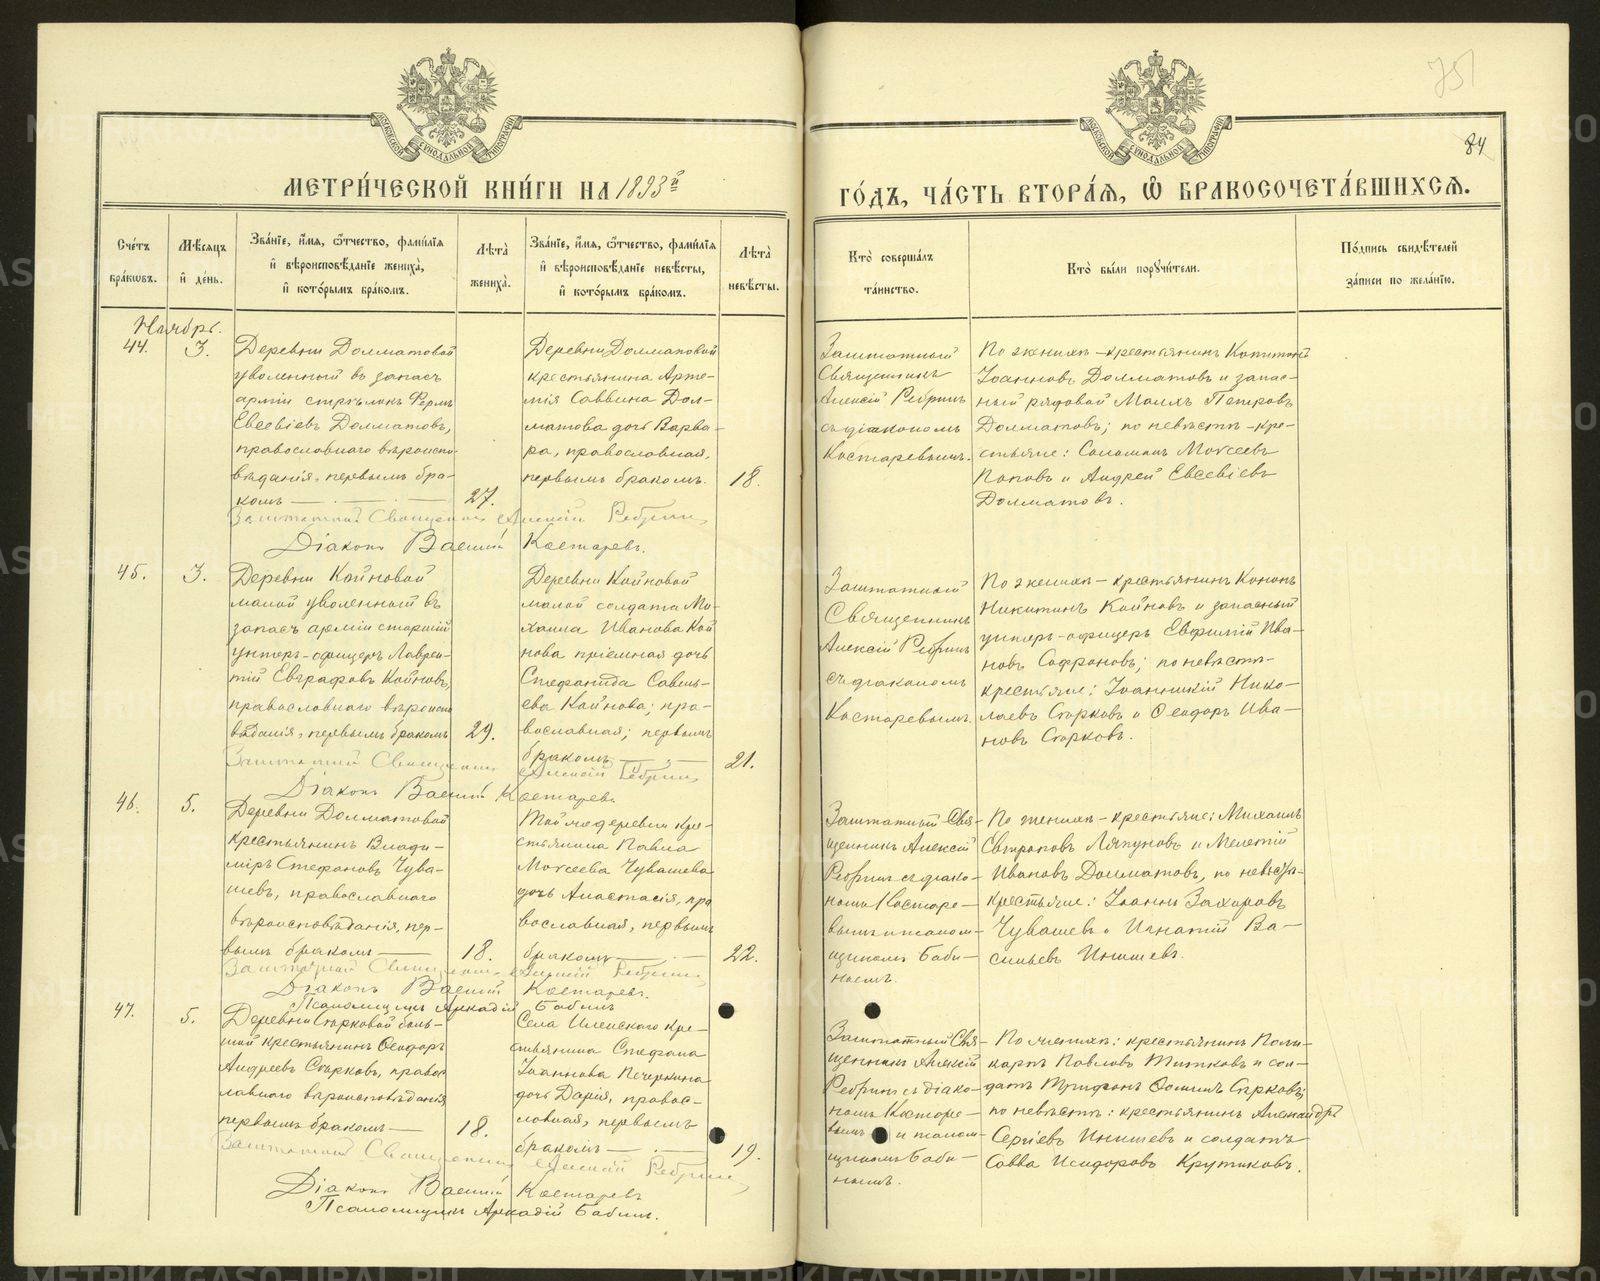 75
84
МЕТРИ́ЧЕСКОЙ КНИ́ГИ НА 1893й
ГО́ДЪ, ЧА́СТЬ ВТОРА́Я, Ѡ҆ БРАКОСОЧЕТА́ВШИХСЯ.
Сче́тъ бра́кѡвъ.
Мѣ́сяцъ и҆ де́нь.
Зва́нїе, и҆́мя, ѻ҆́тчество, фами́лїя и҆ вѣроисповѣ́данїе жениха̀, и҆ кото́рымъ бра́комъ.
Лѣ́та жениха̀.
Зва́нїе, и҆́мя, ѻ҆́тчество, фами́лїя и҆ вѣроисповѣ́данїе невѣ́сты, и҆ кото́рымъ бра́комъ.
Лѣ́та невѣ́сты.
Кто̀ соверша́лъ та́инство.
Кто̀ бы́ли порꙋчи́тели.
По́дпись свидѣ́телей за́писи по жела́нїю.
Ноябрь.
44.
3.
Деревни Долматовой
уволенный въ запасъ
арміи стрѣлокъ
Евсевіевъ Долматовъ,
православнаго вѣроиспо-
вѣданія, первымъ бра-
комъ
27.
Деревни Долматовой
крестьянина Арте-
мія Саввина Дол-
матова дочь Варва-
ра, православная,
первымъ бракомъ.
18.
Заштатный
Священникъ
Алексій Ребринъ
съ діакономъ
Костаревымъ.
По женихѣ – крестьянинъ Капитонъ
Іоанновъ Долматовъ и запас-
ный рядовой Петровъ
Долматовъ; по невѣстѣ – кре-
стьяне: Соломонъ Моѵсеевъ
Поповъ и Андрей Евсевіевъ
Долматовъ.
Заштатный Священникъ Алексій Ребринъ
Діаконъ Василій Костаревъ.
45.
3.
Деревни Койновой
малой уволенный въ
запасъ арміи старшій
унтеръ-офицеръ Лаврен-
тій Евграфовъ Койновъ,
православнаго вѣроиспо
вѣданія, первымъ бракомъ
29.
Деревни Койновой
малой солдата Мо-
Иванова Кой
нова пріемная дочь
Стефанида Савель-
ева Койнова; пра-
вославная; первымъ
бракомъ
21.
Заштатный
Священникъ
Алексій Ребринъ
съ діакономъ
Костаревымъ
По женихѣ – крестьянинъ Кононъ
Никитинъ Койновъ и запасный
унтеръ-офицеръ Евфимій Ива-
новъ Софроновъ; по невѣстѣ –
крестьяне: Іоанникій Нико-
лаевъ Старковъ и Ѳеодоръ Ива-
новъ Старковъ.
Заштатный Священникъ Алексій Ребринъ
Діаконъ Василій Костаревъ
46.
5.
Деревни Долматовой
крестьянинъ Влади-
міръ Стефановъ Чува-
шевъ, православнаго
вѣроисповѣданія, пер-
вымъ бракомъ
18.
Той же деревни кре-
стьянина Павла
Моѵсеева Чувашева
дочь Анастасія, пра
вославная, первымъ
бракомъ
22.
Заштатный Свя-
щенникъ Алексій
Ребринъ съ діако-
номъ Костаре-
вымъ и псалом-
щикомъ Баби-
нымъ.
По женихѣ – крестьяне: Михаилъ
Ляпуновъ и Мелетій
Ивановъ Долматовъ, по невѣстѣ –
крестьяне: Іоаннъ Захаровъ
Чувашевъ и Игнатій Ва-
сильевъ Инишевъ.
Заштатный Священникъ Алексій Ребринъ
Діаконъ Василій Костаревъ.
Псаломщикъ Аркадій Бабинъ
47.
5.
Деревни Старковой боль-
шой крестьянинъ Ѳеодоръ
Андреевъ Старковъ, правос
лавнаго вѣроисповѣданія,
первымъ бракомъ
18.
Села Иленскаго кре-
стьянина Стефана
Іоаннова Печеркина
дочь Дарія, правос-
лавная, первымъ
бракомъ
19.
Заштатный Свя-
щенникъ Алексій
Ребринъ съ діако-
номъ Костаре-
вымъ и псалом-
щикомъ Баби-
нымъ.
По женихѣ: крестьянинъ Поли-
карпъ Павловъ Титковъ и сол-
датъ Трифонъ Ѳоминъ Старковъ;
по невѣстѣ: крестьянинъ Александръ
Сергіевъ Инишевъ и солдатъ
Савва Исидоровъ Крутиковъ.
Заштатный Священникъ Алексій Ребринъ
Діаконъ Василій Костаревъ
Псаломщикъ Аркадій Бабинъ.